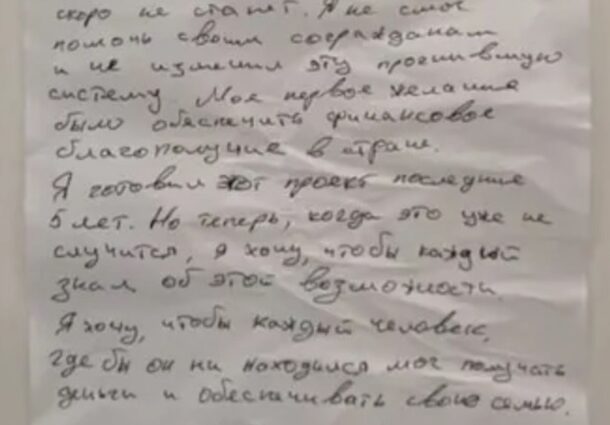 скоро не станет. Я не смог
помочь своим согражданам
и не изменил эту прогнившую
систему. Мое первое желание
было обеспечить финансовое
благополучие в стране.
Я готовил этот проект последние
5 лет. Но теперь, когда это уже не
случится, я хочу, чтобы каждый
знал об этой возможности.
Я хочу, чтобы каждый человек,
где бы он ни находился мог получать
деньги и обеспечивать свою семью.